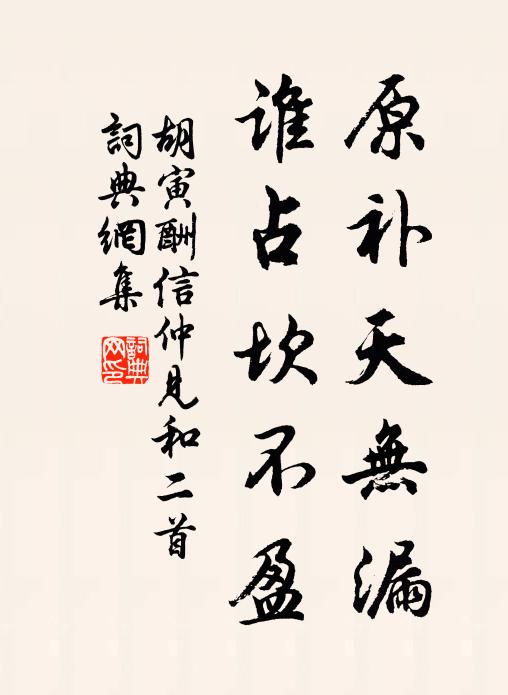 原补天無漏
誰占坎不盈
胡寅酬信仲見和二首
詞典網集
詞典網印